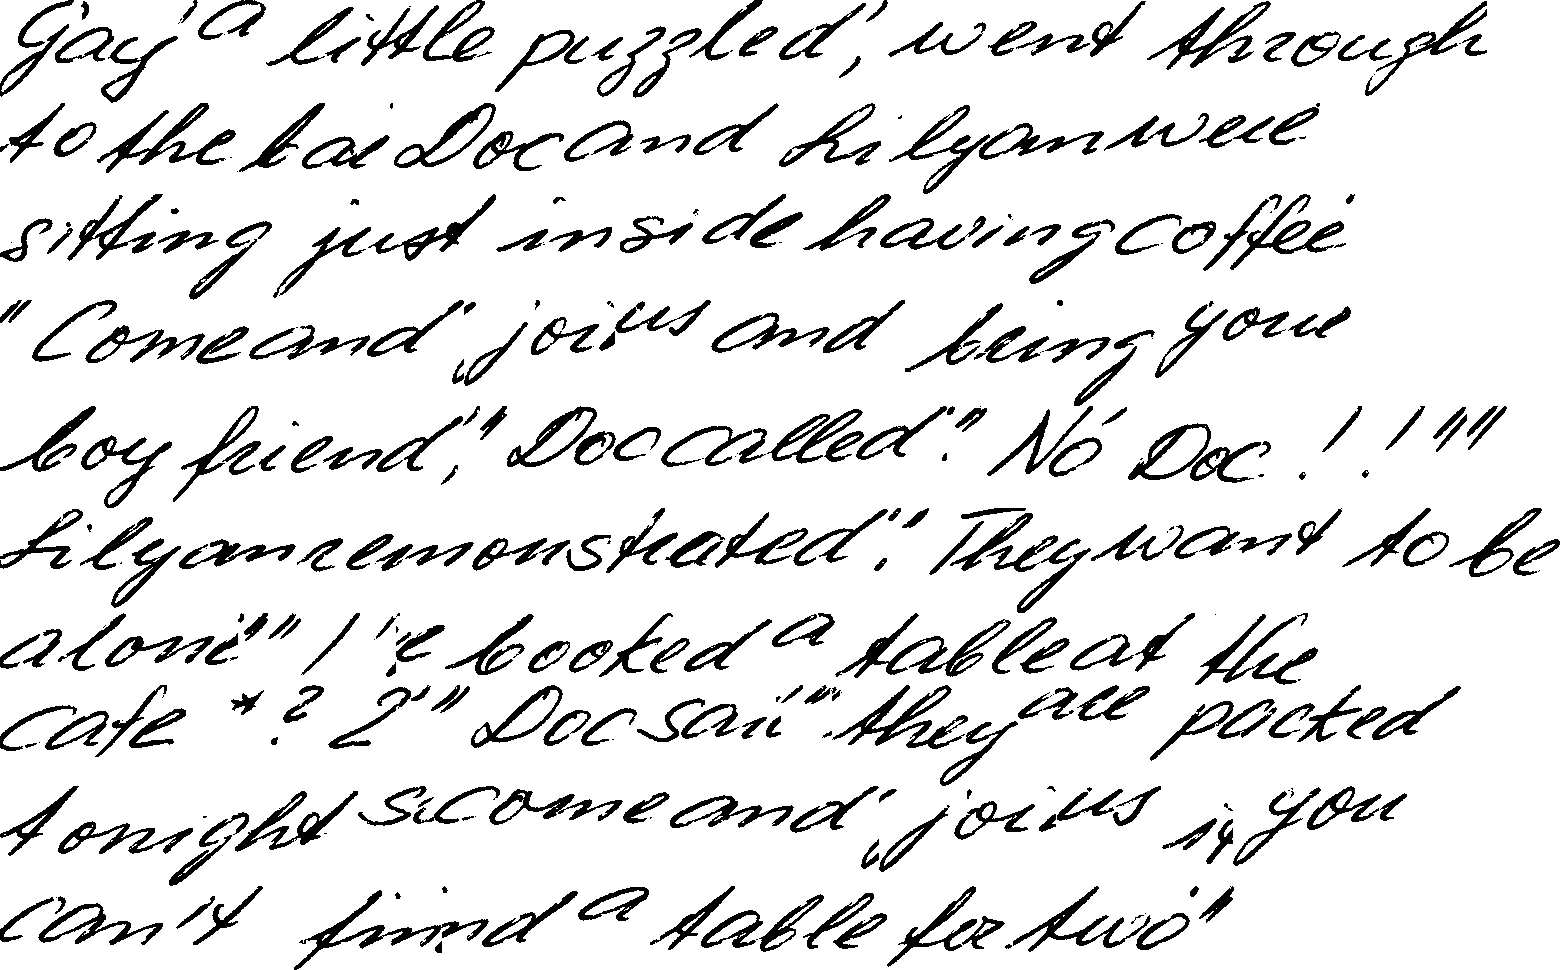 Gay a little puzzled, went through
to the bar Doc and Lilyan were
sitting just inside having coffee
"Come and join us and bring your
boy friend," Doc called". No Doc!!""
Lilyan remonstrated". They want to be
alone"" I've booked a table at the
cafe *? 2" Doc said". they are packed
tonight so come and join us if you
can't find a table for two"